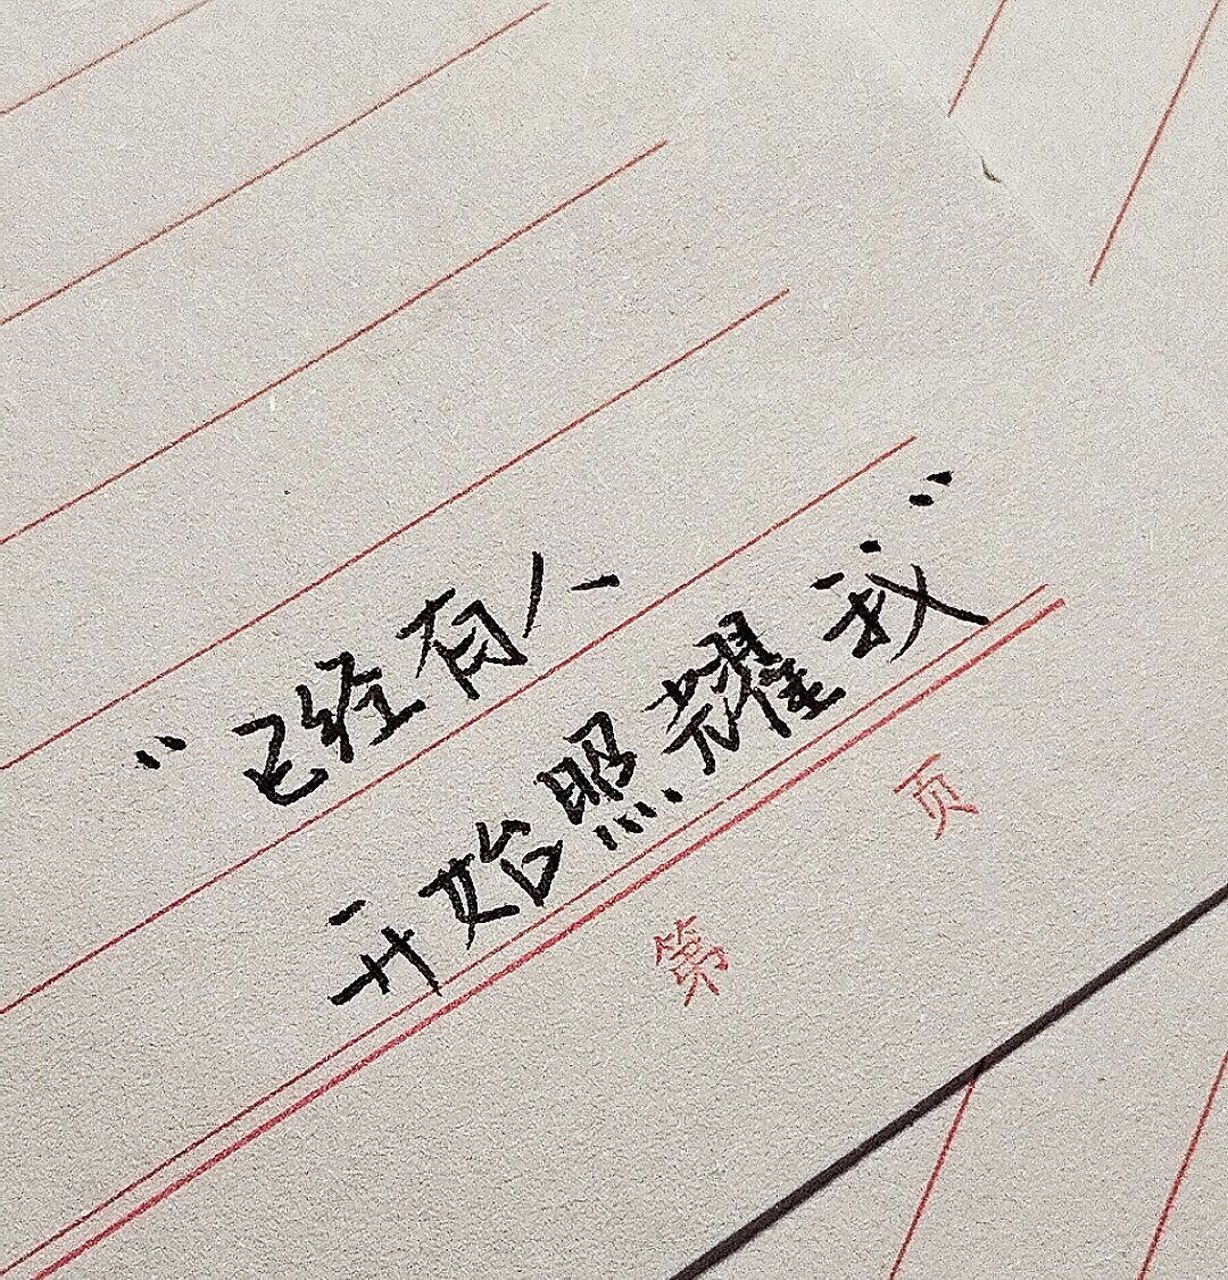 “已经有人
开始照耀我”
第 页